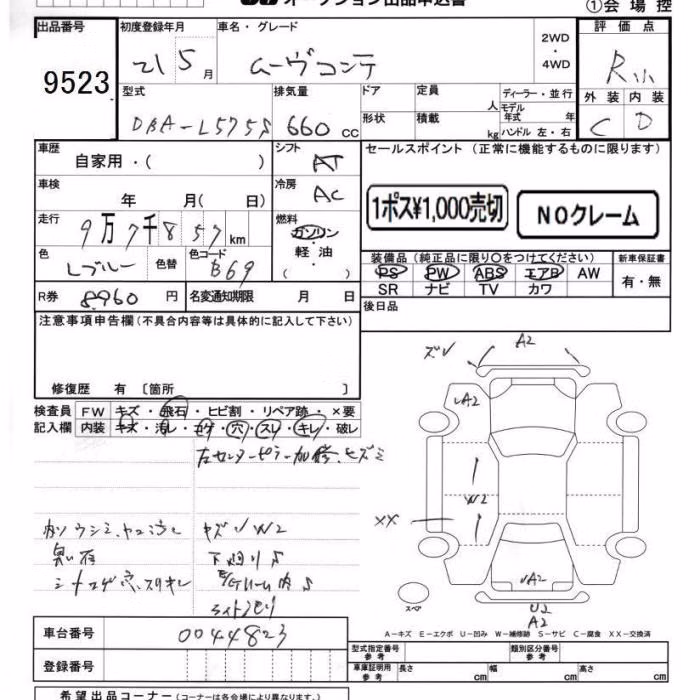 オークション出品申込書
①会場控
出品番号 初度登録年月 車名・グレード 2WD・4WD 評価点
9523 21 5月 ムーヴコンテ R小
外装 内装
C D
型式 排気量 ドア 定員 人 ディーラー・並行
DBA-L575S 660 CC 形状 積載 kg モデル年式 年
ハンドル 左・右
車歴 自家用・( ) シフト AT セールスポイント (正常に機能するものに限ります)
車検 年 月( 日) 冷房 AC
1ポス¥1,000売切 NOクレーム
走行 9万7千857km 燃料 ガソリン
軽油
( )
色 Lブルー 色替 色コード B69
装備品 (純正品に限り○をつけてください) 新車保証書
PS PW ABS エアB AW 有・無
SR ナビ TV カワ
R券 8960円 名変通知期限 月 日 後日品
注意事項申告欄 (不具合内容等は具体的に記入して下さい)
修復歴 有 〔箇所 〕
検査員 FW キズ・飛石・ヒビ割・リペア跡・×要
記入欄 内装 キズ・汚レ・コゲ・穴・スレ・キレ・破レ
左センターピラー加修、ヒズミ
キズV W2
臭い有
下廻りS
ライト
A2
A2
W2
XX
A2
スペア
U2
A2
A-キズ E-エクボ U-凹み W-補修跡 S-サビ C-腐食 XX-交換済
車台番号 0044823
型式指定番号 参考 類別区分番号 参考
登録番号
車庫証明用 参考 長さ cm 幅 cm 高さ cm
希望出品コーナー (コーナーは各会場により異なります。)